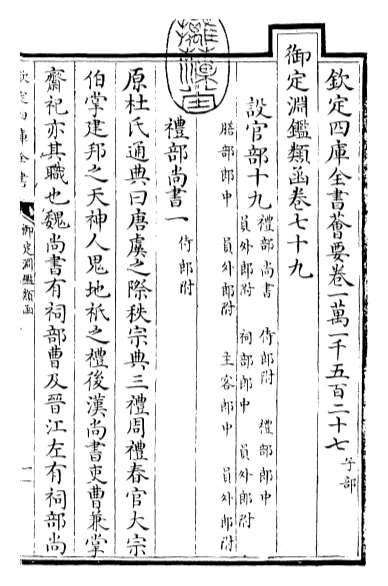 欽定四庫全書薈要卷一萬一千五百二十七 子部
御定淵鑑類函卷七十九
設官部十九
禮部尚書 侍郎附 禮部郎中
員外郎附 祠部郎中 員外郎附
膳部郎中 員外郎附 主客郎中 員外郎附
禮部尚書一 侍郎附
原杜氏通典曰唐虞之際秩宗典三禮周禮春官大宗
伯掌建邦之天神人鬼地祇之禮後漢尚書吏曹兼掌
齋祀亦其職也魏尚書有祠部曹及晉江左有祠部尚
欽定四庫全書
御定淵鑑類函